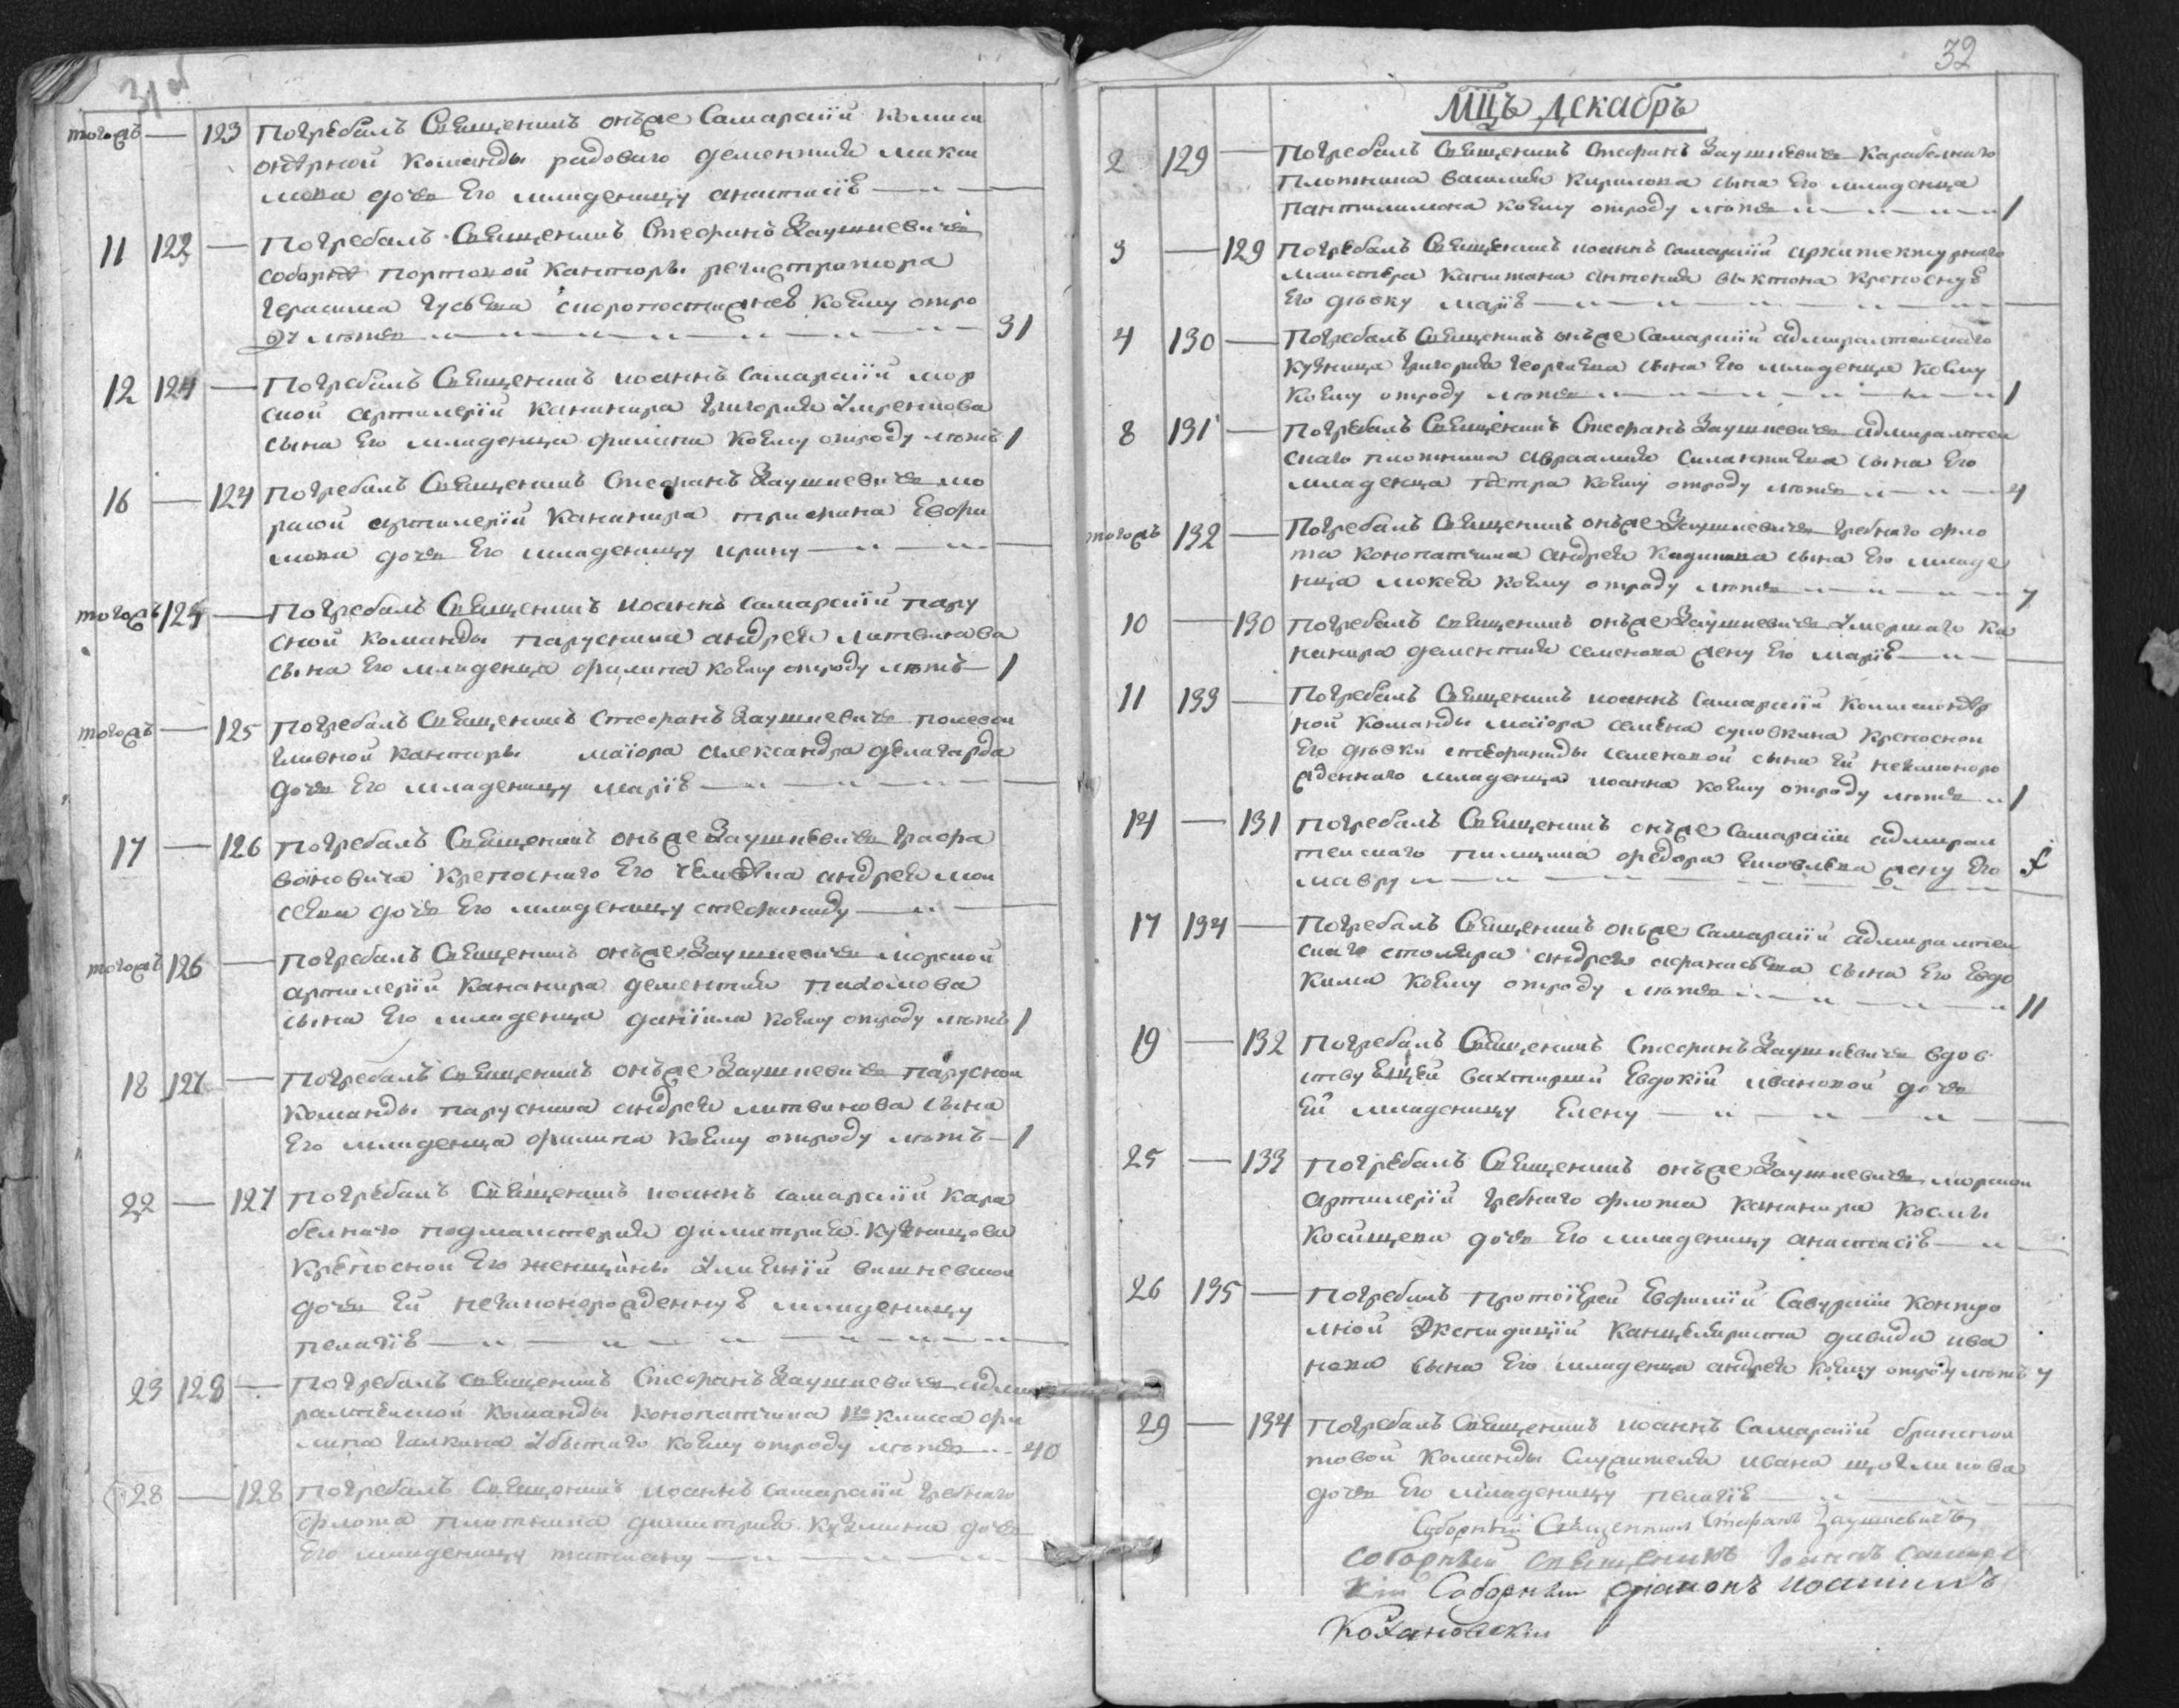 31 об
тогождъ — 123 Погребалъ Священникъ онъже Самарскiй комиси
онѣрной команды радоваго дементия макси
мова дочь Его младеницу анастасiю
11 122 — Погребалъ Священникъ Стефанъ Заушкевичь
соборнѣ портовой канторы регистратора
герасима гусѣва скоропостижнѣ коему отро
ду лѣтъ 31
12 124 — Погребалъ Священникъ иоаннъ Самарскiй мор
ской артилерiи канонира григория
сына Его младенца филипа коему отроду лѣтъ 1
16 — 124 Погребалъ Священникъ Стефанъ Заушкевичь мо
рской артилерiи канонира трифона Евфи
мова дочь Его младеницу ирину
тогождъ 125 — Погребалъ Священникъ иоаннъ Самарскiй пару
сной команды парусника андрея литвинова
сына Его младенца филипа коему отроду лѣтъ 1
тогождъ — 125 Погребалъ Священникъ Стефанъ Заушкевичь
канторы маiора александра делагарда
дочь Его младеницу марiю
17 — 126 Погребалъ Священникъ онъже Заушкевичь графа
воиновича крепоснаго Его человѣка андрея мои
сеева дочь Его младеницу стефаниду
тогождъ 126 — Погребалъ Священникъ онъже Заушкевичь морской
артилерiи канонира дементия пахомова
сына Его младенца данiила коему отроду лѣтъ 1
18 127 — Погребалъ Священникъ онъже Заушкевичь парусной
команды парусника андрея литвинова сына
Его младенца филипа коему отроду лѣтъ 1
22 — 127 Погребалъ Священникъ иоаннъ Самарскiй кара
белнаго подмастерия димитрия кузнецова
крепосной Его женщины вишневской
дочь Ей незаконорожденную младеницу
пелагiю
23 128 — Погребалъ Священникъ Стефанъ Заушкевичь адми
ралтейской команды конопатчика 1го класса фи
липа галкина убытаго коему отроду лѣтъ 40
28 — 128 Погребалъ Священникъ иоаннъ Самарскiй гребнаго
флота плотника димитрия кузмина дочь
Его младеницу татиану
32
Мцъ декабрь
2 129 — Погребалъ Священникъ Стефанъ Заушкевичь карабелнаго
плотника василия кирилова сына Его младенца
пантилимона коему отроду лѣтъ 1
3 — 129 Погребалъ Священникъ иоаннъ Самарскiй архитектурнаго
маистера капитана антония вектона крепосную
Его дѣвку марiю
4 130 — Погребалъ Священникъ онъже Самарскiй адмиралтейскаго
кузнеца григория георгиева сына Его младенца коему
коему отроду лѣтъ 1
8 131 — Погребалъ Священникъ Стефанъ Заушкевичь адмиралтей
скаго плотника авраамия силантиева сына Его
младенца петра коему отроду лѣтъ 4
тогождъ 132 — Погребалъ Священникъ онъже Заушкевичь гребнаго фло
та конопатчика андрея кадинова сына Его младе
нца мокея коему отроду лѣтъ 7
10 — 130 Погребалъ Священникъ онъже Заушкевичь умершаго ка
нонира дементия семенова жену Его марiю
11 133 — Погребалъ Священникъ иоаннъ Самарскiй комисионѣр
ной команды маiора семена суповкина крепосной
Его дѣвки стефаниды семеновой сына Ей незаконоро
жденнаго младенца иоанна коему отроду лѣтъ 1
14 — 131 Погребалъ Священникъ онъже Самарскiй адмирал
тейскаго пилщика федора жену Его
мавру
17 134 — Погребалъ Священникъ онъже Самарскiй адмиралтей
скаго столяра андрея афанасьева сына Его Евдо
кима коему отроду лѣтъ 11
19 — 132 Погребалъ Священникъ Стефанъ Заушкевичь вдов
ствующей вахтерши Евдокiи ивановой дочь
Ей младеницу Елену
25 — 133 Погребалъ Священникъ онъже Заушкевичь морской
артилерiи гребнаго флота канонира космы
косищева дочь Его младеницу анастасiю
26 135 — Погребалъ протоiерей Евфимiй Савурскiй контро
лной Экспедицiи канцеляриста давида ива
нова сына Его младенца андрея коему отроду лѣтъ 4
29 — 134 Погребалъ Священникъ иоаннъ Самарскiй
товой команды служителя ивана щеглинова
дочь Его младеницу пелагiю
Соборный Священникъ Стефанъ Заушкевичь
соборный священникъ Iоаннъ Самарс
кiй Соборный дiаконъ иоакимъ
Кохановский